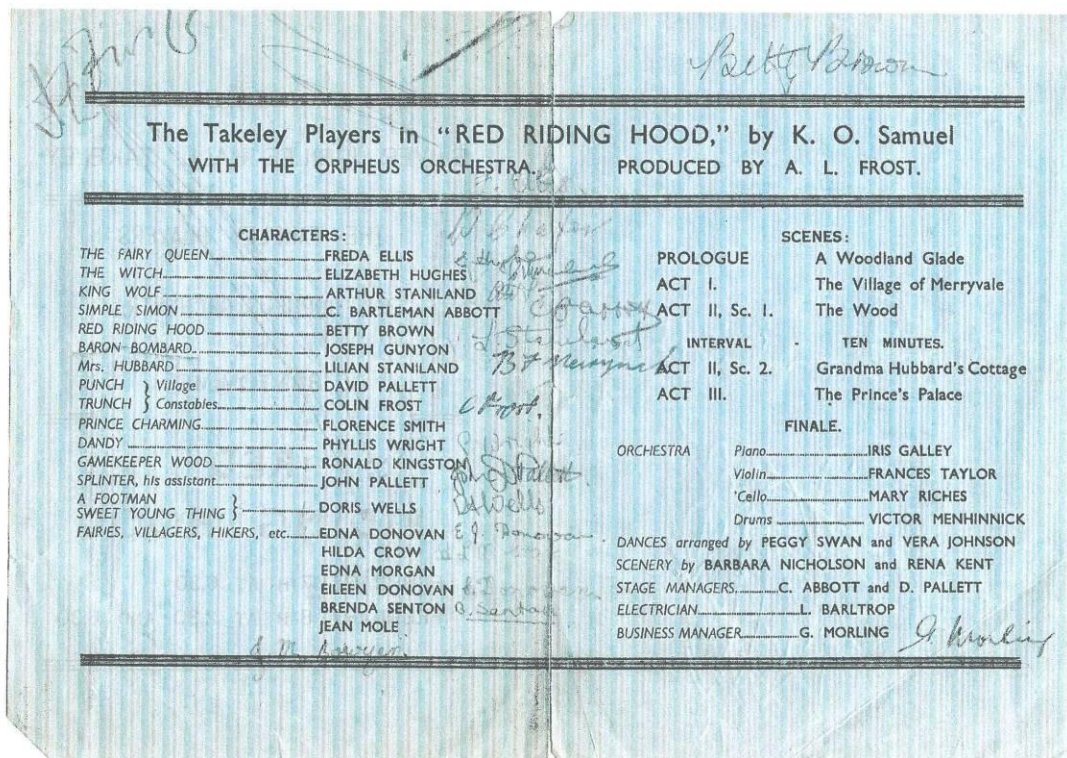 Betty Brown
The Takeley Players in "RED RIDING HOOD," by K. O. Samuel
WITH THE ORPHEUS ORCHESTRA. PRODUCED BY A. L. FROST.
CHARACTERS:
THE FAIRY QUEEN FREDA ELLIS
THE WITCH ELIZABETH HUGHES
KING WOLF ARTHUR STANILAND
SIMPLE SIMON C. BARTLEMAN ABBOTT
RED RIDING HOOD BETTY BROWN
BARON BOMBARD JOSEPH GUNYON
Mrs. HUBBARD LILIAN STANILAND
PUNCH } Village DAVID PALLETT
TRUNCH } Constables COLIN FROST
C Frost.
PRINCE CHARMING FLORENCE SMITH
DANDY PHYLLIS WRIGHT
GAMEKEEPER WOOD RONALD KINGSTON
SPLINTER, his assistant JOHN PALLETT
A FOOTMAN
SWEET YOUNG THING } DORIS WELLS
D Wells
FAIRIES, VILLAGERS, HIKERS, etc. EDNA DONOVAN
E J Donovan
HILDA CROW
EDNA MORGAN
EILEEN DONOVAN
E. Donovan
BRENDA SENTON
B. Senton
JEAN MOLE
SCENES:
PROLOGUE A Woodland Glade
ACT I. The Village of Merryvale
ACT II, Sc. 1. The Wood
INTERVAL · TEN MINUTES.
ACT II, Sc. 2. Grandma Hubbard's Cottage
ACT III. The Prince's Palace
FINALE.
ORCHESTRA Piano IRIS GALLEY
Violin FRANCES TAYLOR
'Cello MARY RICHES
Drums VICTOR MENHINNICK
DANCES arranged by PEGGY SWAN and VERA JOHNSON
SCENERY by BARBARA NICHOLSON and RENA KENT
STAGE MANAGERS C. ABBOTT and D. PALLETT
ELECTRICIAN L. BARLTROP
BUSINESS MANAGER G. MORLING
G. Morling